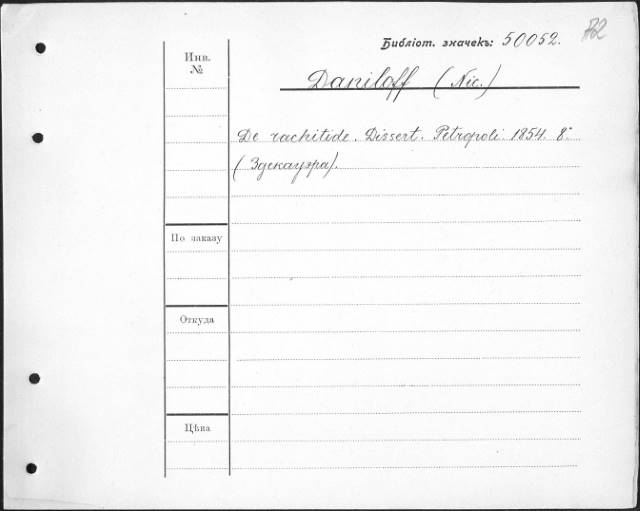 72
Библіот. значекъ: 50052.
Инв.
№
Daniloff (Nic.)
De rachitide. Dissert. Petropoli. 1854. 8°
(Здекауэра).
По заказу
Откуда
Цѣна